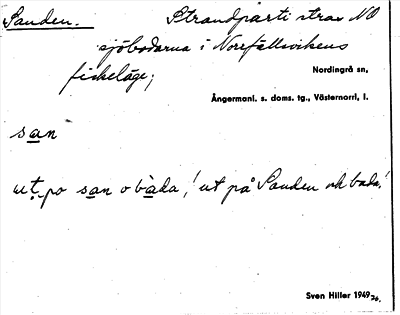 Sanden. Strandparti strax NO
sjöbodarna i Norrfällsvikens
fiskeläge;
Nordingrå sn,
Ångermanl. s. doms. tg., Västernorrl. l.
san
ut po san o bàda, 'ut på Sanden och bada!'
Sven Hiller 1949